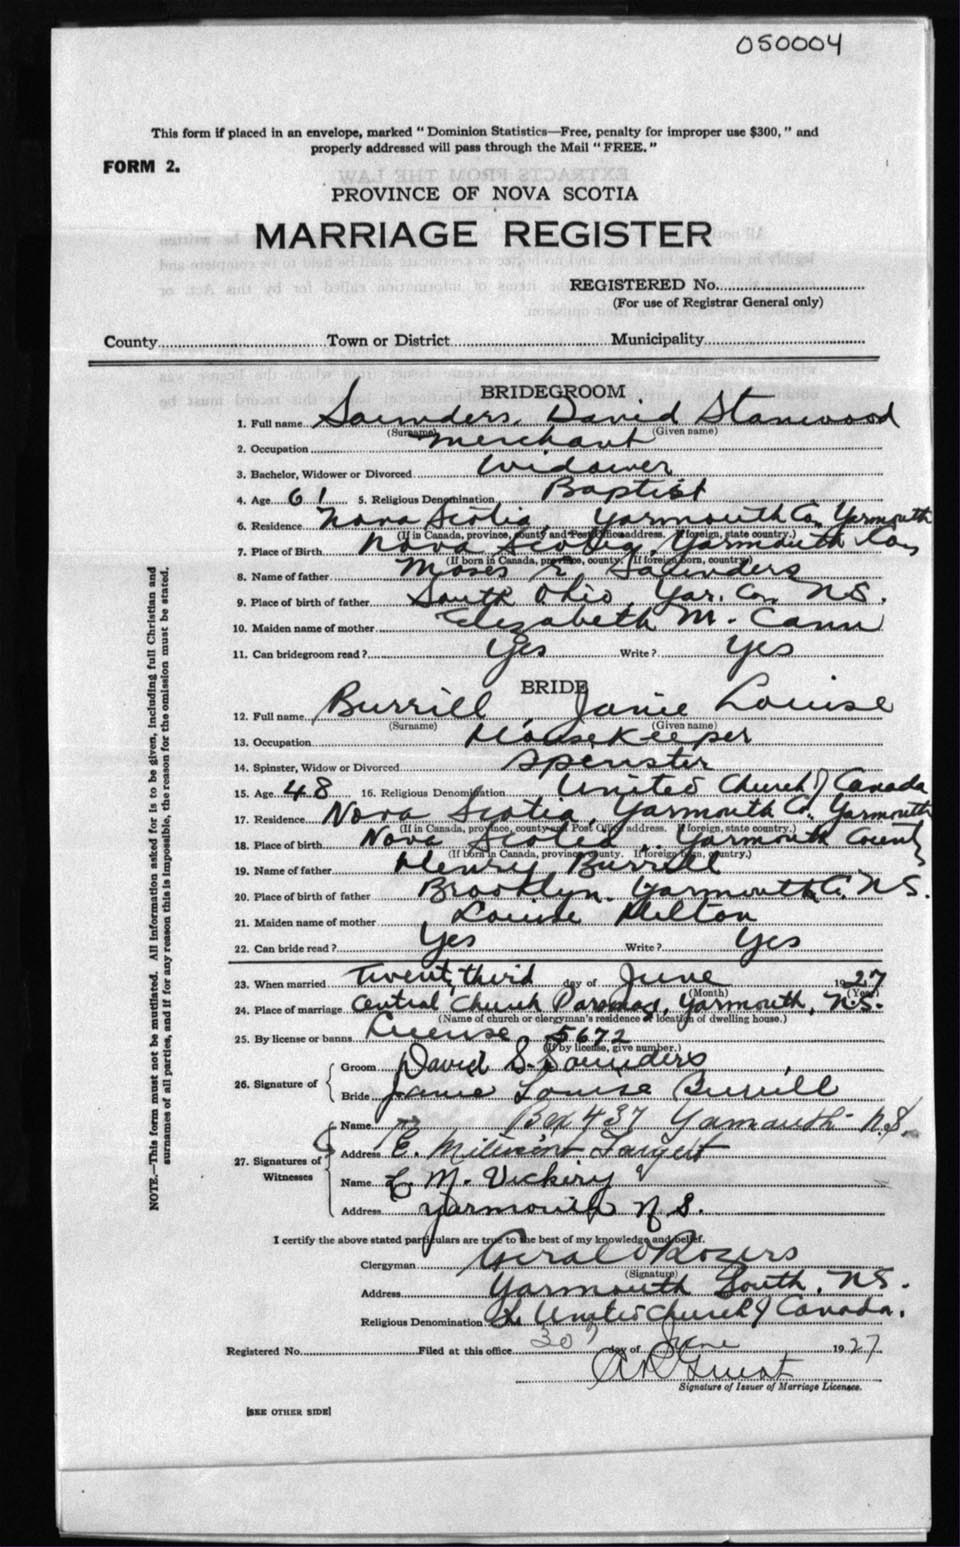 050004
This form if placed in an envelope, marked "Dominion Statistics—Free, penalty for improper use $300," and
properly addressed will pass through the Mail "FREE."
FORM 2.
PROVINCE OF NOVA SCOTIA
MARRIAGE REGISTER
REGISTERED No.
(For use of Registrar General only)
County Town or District Municipality
BRIDEGROOM
1. Full name Saunders, David Stanwood
(Surname) (Given name)
2. Occupation Merchant
3. Bachelor, Widower or Divorced Widower
4. Age 61 5. Religious Denomination Baptist
6. Residence Nova Scotia, Yarmouth Co. Yarmouth
(If in Canada, province, county and Post Office address. If foreign, state country.)
7. Place of Birth Nova Scotia, Yarmouth Co.,
(If born in Canada, province, county. If foreign born, country.)
8. Name of father Moses E. Saunders
9. Place of birth of father South Ohio, Yar. Co. N.S.
10. Maiden name of mother Elizabeth M. Cann
11. Can bridegroom read? Yes Write? Yes
BRIDE
12. Full name Burrill, Janie Louise
(Surname) (Given name)
13. Occupation Housekeeper
14. Spinster, Widow or Divorced Spenster
15. Age 48 16. Religious Denomination United Church of Canada
17. Residence Nova Scotia, Yarmouth Co., Yarmouth
(If in Canada, province, county and Post Office address. If foreign, state country.)
18. Place of birth Nova Scotia, Yarmouth County
(If born in Canada, province, county. If foreign born, country.)
19. Name of father Henry Burrill
20. Place of birth of father Brooklyn. Yarmouth Co. N.S.
21. Maiden name of mother Louise Hilton
22. Can bride read? Yes Write? Yes
23. When married Twenty third day of June 1927
(Month) (Year)
24. Place of marriage Central Church Parsonage, Yarmouth, N.S.
(Name of church or clergyman's residence or location of dwelling house.)
25. By license or banns License 5672
(If by license, give number.)
26. Signature of Groom David S. Saunders
Bride Janie Louise Burrill
27. Signatures of Witnesses
Name Box 437 Yarmouth N.S.
Address E.
Name M. Vickery
Address Yarmouth N S.
I certify the above stated particulars are true to the best of my knowledge and belief.
Clergyman Gerald Rogers
(Signature)
Address Yarmouth South, N.S.
Religious Denomination United Church of Canada.
Registered No. Filed at this office 30 day of June 1927
Signature of Issuer of Marriage Licenses.
[SEE OTHER SIDE]
NOTE.—This form must not be mutilated. All information asked for is to be given, including full Christian and
surnames of all parties, and if for any reason this is impossible, the reason for the omission must be stated.